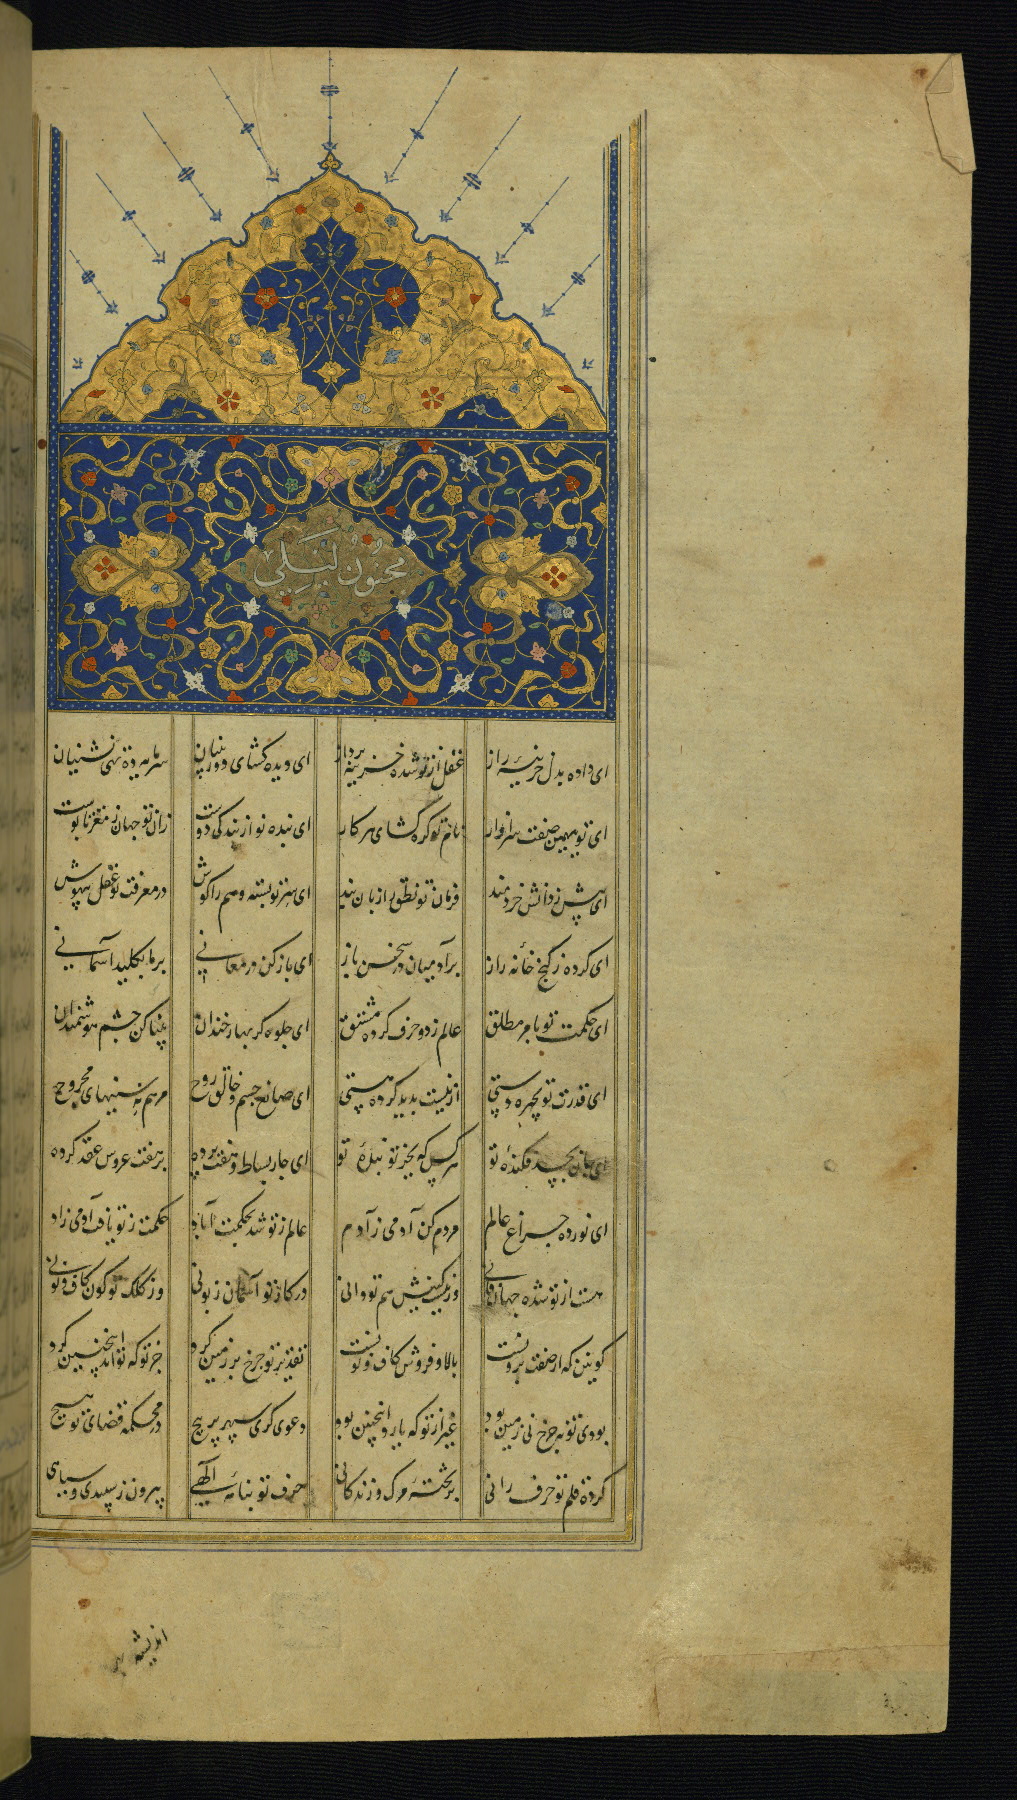 مجنون لیلی
ای داده بدل خزینهٔ راز عقل از تو شده خزینه پرداز ای دیده کشای دوربینان سرمایه ده تهی نشینان
ای تو بهمین صفت سزاوار نام تو گره کشای هر کار ای بنده نواز بندگی دوست زان تو جهان ز مغز تا پوست
ای بیش ز دانش خردمند فرمان تو نطق را زبان بند ای سر تو بسته وهم را گوش در معرفت تو عقل بیهوش
ای کرده ز گنج خانهٔ راز بر آدمیان در سخن باز ای باز کن در معانی بر ما بکلید آسمانی
ای حکمت تو بامر مطلق عالم ز دو حرف کرده مشتق ای جلوه گر بهار خندان بینا کن چشم هوشمندان
ای قدرت تو بچیره دستی از نیست پدید کرده هستی ای صانع جسم و خالق روح مرهم نه سینهای مجروح
ای تو کس که بجز تو بندهٔ تو ای چار بساط و هفت پرده بر هفت عروس عقد کرده
ای نور ده چراغ عالم مردم کن آدمی ز آدم عالم ز تو شد بحکمت آباد حکمت ز تو یافت آدمی زاد
هست از تو شده جهان فانی وز نیست کنیش هم تو دانی در کار تو آسمان زبونی وز کلک تو کون کاف و نونی
کونین که از صفت برونست بالا و فروش کاف و نونست تقدیر تو چرخ بر زمین کرد جز تو که تواند اینچنین کرد
بودی تو نه چرخ نی زمین بود غیر از تو که یارد اینچنین بود دعوی گری سپهر پر پیچ در محکمه قضای تو هیچ
کرده قلم تو حرف رانی بر تختهٔ مرگ و زندگانی حرف تو بنامهٔ آلهی بیرون ز سپیدی و سیاهی
اندیشه